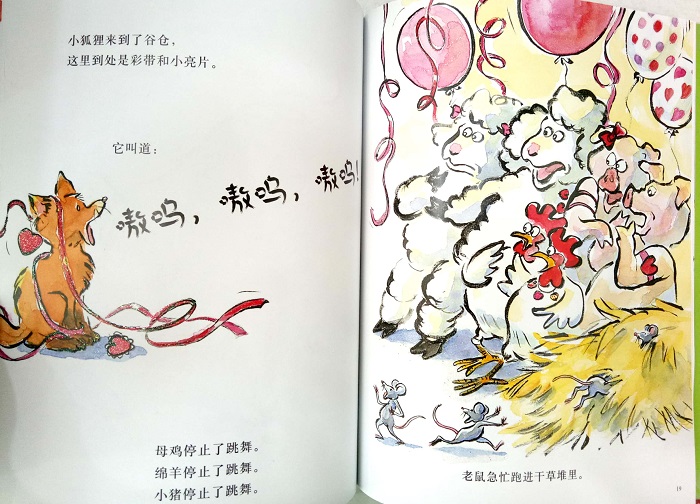 小狐狸来到了谷仓，
这里到处是彩带和小亮片。
它叫道：
嗷呜，嗷呜，嗷呜！
母鸡停止了跳舞。
绵羊停止了跳舞。
小猪停止了跳舞。
老鼠急忙跑进干草堆里。
19